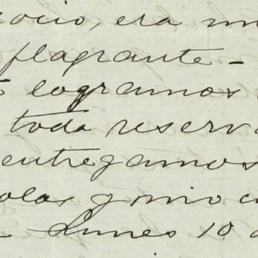 ocio, era un
flagrante -
logramos
toda reserv
entregamos
Lunes 10 d